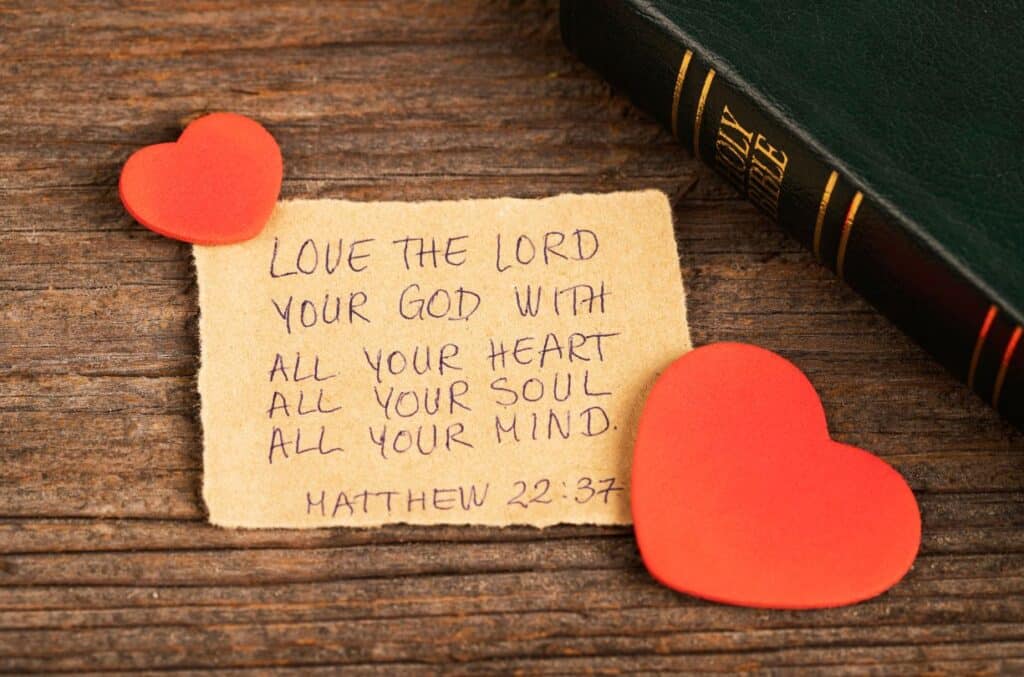 LOVE THE LORD
YOUR GOD WITH
ALL YOUR HEART
ALL YOUR SOUL
ALL YOUR MIND.
MATTHEW 22:37
HOLY
BIBLE